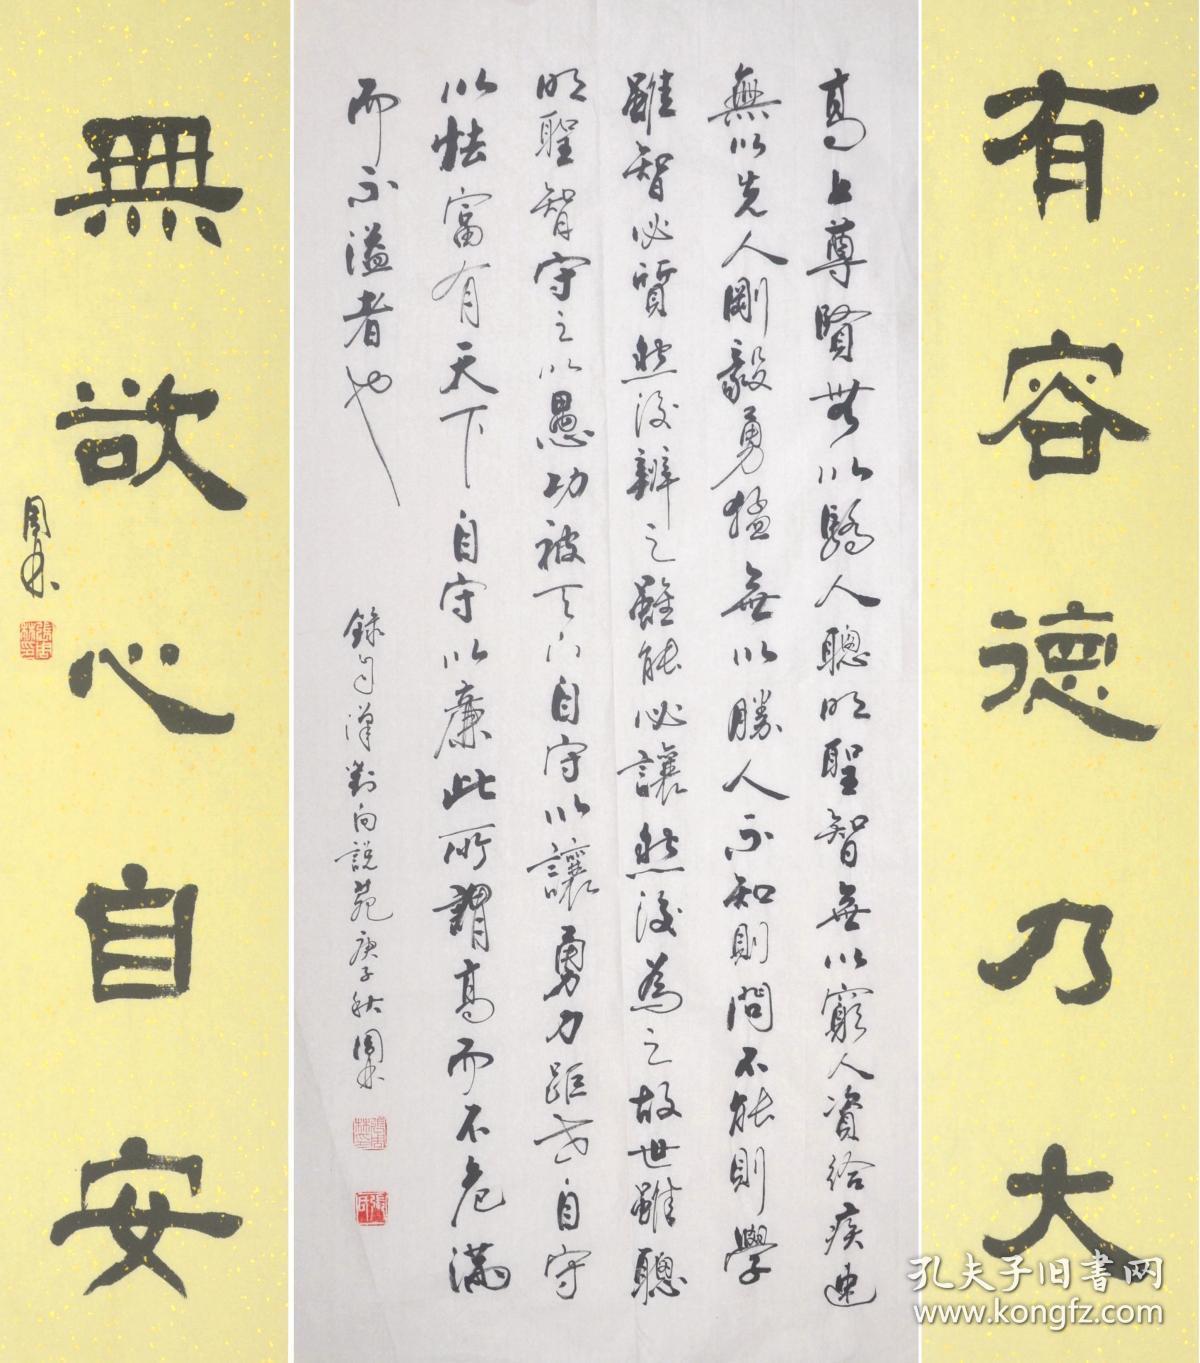 有容德乃大
高上尊賢無以驕人聰明聖智無以窮人資給疾速
無以先人剛毅勇猛無以勝人不知則問不能則學
雖智必質然後辨之雖能必讓然後為之故世雖聰
明聖智守之以愚功被天下自守以讓勇力距世自守
以怯富有天下自守以廉此所謂高而不危滿
而不溢者也
錄自漢劉向說苑庚子秋周林
無欲心自安
周林
孔夫子旧書网
www.kongfz.com